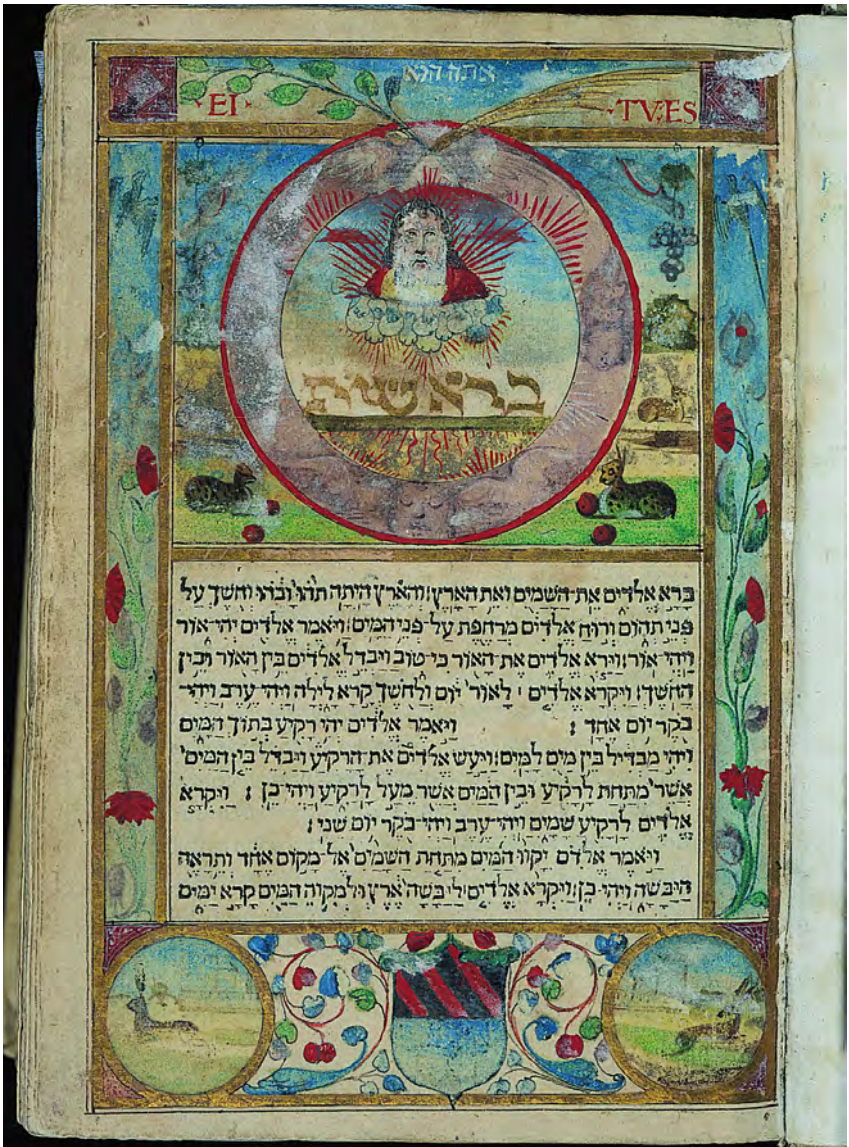 אתה הוא
EI TV·ES
בראשית
ברא אלדים את־השמים ואת הארץ׃ והארץ היתה תהו ובהו וחשך על
פני תהום ורוח אלדים מרחפת על־פני המים׃ ויאמר אלדים יהי־אור
ויהי־אור׃ וירא אלדים את־האור כי־טוב ויבדל אלדים בין האור ובין
החשך׃ ויקרא אלדים ׀ לאור יום ולחשך קרא לילה ויהי־ערב ויהי־
בקר יום אחד׃ ויאמר אלדים יהי רקיע בתוך המים
ויהי מבדיל בין מים למים׃ ויעש אלדים את־הרקיע ויבדל בין המים
אשר מתחת לרקיע ובין המים אשר מעל לרקיע ויהי־כן׃ ויקרא
אלדים לרקיע שמים ויהי־ערב ויהי־בקר יום שני׃
ויאמר אלדים יקוו המים מתחת השמים אל־מקום אחד ותראה
היבשה ויהי־כן׃ ויקרא אלדים ליבשה ארץ ולמקוה המים קרא ימים